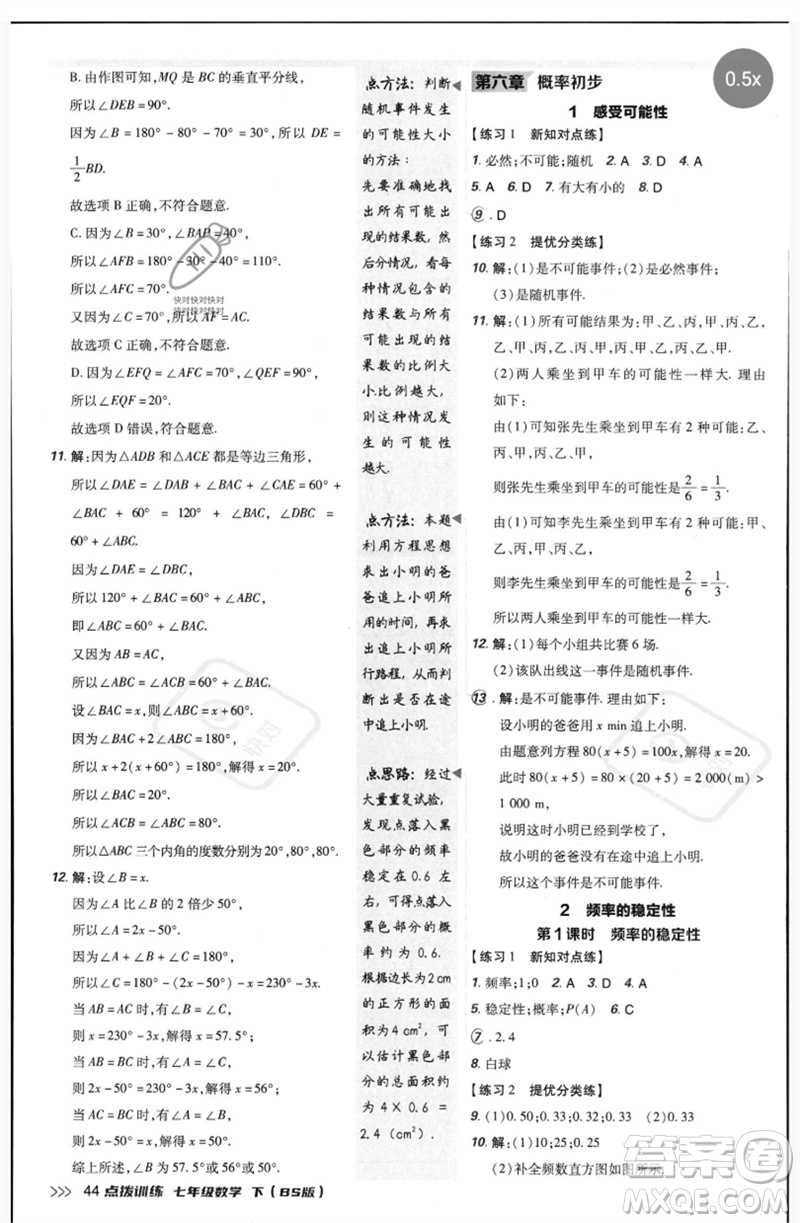 B. 由作图可知, MQ 是 BC 的垂直平分线,
所以∠DEB=90°.
因为∠B=180°-80°-70°=30°, 所以 DE=
1/2 BD.
故选项 B 正确,不符合题意.
C. 因为∠B=30°,∠BAP=40°,
所以∠AFB=180°-30°-40°=110°.
所以∠AFC=70°.
又因为∠C=70°,所以 AF=AC.
故选项 C 正确,不符合题意.
D. 因为∠EFQ=∠AFC=70°,∠QEF=90°,
所以∠EQF=20°.
故选项 D 错误,符合题意.
11. 解:因为△ADB 和△ACE 都是等边三角形,
所以∠DAE=∠DAB+∠BAC+∠CAE=60°+
∠BAC+60°=120°+∠BAC,∠DBC=60°
+∠ABC.
又因为∠DAE=∠DBC,
所以 120°+∠BAC=60°+∠ABC,
即∠ABC=60°+∠BAC.
又因为 AB=AC,
所以∠ABC=∠ACB=60°+∠BAC.
设∠BAC=x,则∠ABC=∠ACB=x+60°.
因为∠BAC+2∠ABC=180°,
所以 x+2(x+60°)=180°,解得 x=20°.
所以∠BAC=20°,
所以∠ABC=∠ACB=∠BAC+60°=80°.
所以△ABC 三个内角的度数分别为20°,80°,80°.
12. 解:设∠B=x.
因为∠A 比∠B 的 2 倍少 50°,
所以∠A=2x-50°.
因为∠A+∠B+∠C=180°,
所以∠C=180°-(2x-50°)-x=230°-3x.
当 AB=AC 时,有∠B=∠C,
则 x=230°-3x,解得 x=57.5°.
当 AB=BC 时,有∠A=∠C,
则 2x-50°=230°-3x,解得 x=56°.
当 AC=BC 时,有∠A=∠B,
则 2x-50°=x,解得 x=50°.
综上所述,∠B 的度数为 57.5°或 56°或 50°.
点方法:判断
随机事件发生
的可能性大小
的方法:
先要准确地找
出所有可能出
现的结果数,然
后分情况,看每
种情况包含的
结果数与所有
可能出现的结
果数的比例大
小.比例越大,
则这种情况发
生的可能性
越大.
点方法:本题
利用方程思想
求出小明的爸
爸追上小明所
用的时间,再求
出追上小明所
行路程,从而判
断出是否在途
中追上小明.
点思路:经过
大量重复试验,
发现点落入黑
色部分的频率
稳定在0.6左
右,可得点落入
黑色部分的概
率约为0.6.
根据边长为2cm
的正方形的面
积为4 cm²,可
以估计黑色部
分的总面积约
为4×0.6=
2.4(cm²).
第六章 概率初步
1 感受可能性
【练习1 新知对点练】
1. 必然;不可能;随机 2. A 3. D 4. A
5. A 6. D 7. 有大有小的 8. D
⑨. D
【练习2 提优分类练】
10. 解:(1)是不可能事件;(2)是必然事件;
(3)是随机事件.
11. 解:(1)所有可能结果为:甲、乙、丙,甲、丙、乙,
乙、甲、丙,乙、丙、甲,丙、甲、乙,丙、乙、甲.
(2)两人乘坐到甲车的可能性一样大. 理由
如下:
由(1)可知张先生乘坐到甲车有 2 种可能:乙、
丙、甲,丙、乙、甲,
则张先生乘坐到甲车的可能性是2/6=1/3.
由(1)可知李先生乘坐到甲车有 2 种可能:甲、
乙、丙,甲、丙、乙,
则李先生乘坐到甲车的可能性是2/6=1/3.
所以两人乘坐到甲车的可能性一样大.
12. 解:(1)每个小组共比赛 6 场.
(2)该队出线这一事件是随机事件.
⑬. 解:是不可能事件. 理由如下:
设小明的爸爸用 x min 追上小明.
由题意列方程 80(x+5)=100x,解得 x=20.
此时 80(x+5)=80×(20+5)=2 000(m)>
1 000 m,
说明这时小明已经到了学校,
故小明的爸爸没有在途中追上小明.
所以这个事件是不可能事件.
2 频率的稳定性
第1课时 频率的稳定性
【练习1 新知对点练】
1. 频率;1;0 2. A 3. D 4. A
5. 稳定性;概率;P(A) 6. C
⑦. 2.4
8. 白球
【练习2 提优分类练】
9. (1)0.50;0.33 (2)0.33
10. 解:(1)10;25;0.25
(2)补全频数直方图如图所示.
>>> 44 点拨训练 七年级数学 下(BS版)
0.5x
快对快对快对
快对快对快对
快对
快对
答案圈
MXQE.COM